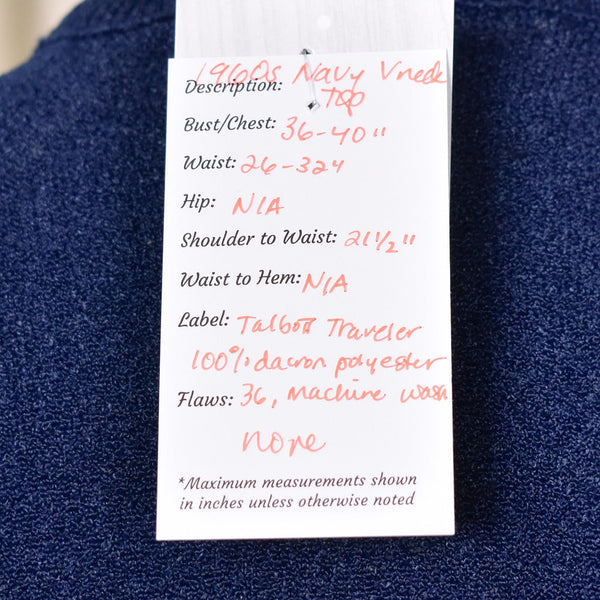 1960s Navy Vneck
Description: Top
Bust/Chest: 36-40"
Waist: 26-32"
Hip: N/A
Shoulder to Waist: 21 1/2"
Waist to Hem: N/A
Label: Talbott Traveler
100% dacron polyester
Flaws: 36, Machine wash
none
*Maximum measurements shown
in inches unless otherwise noted